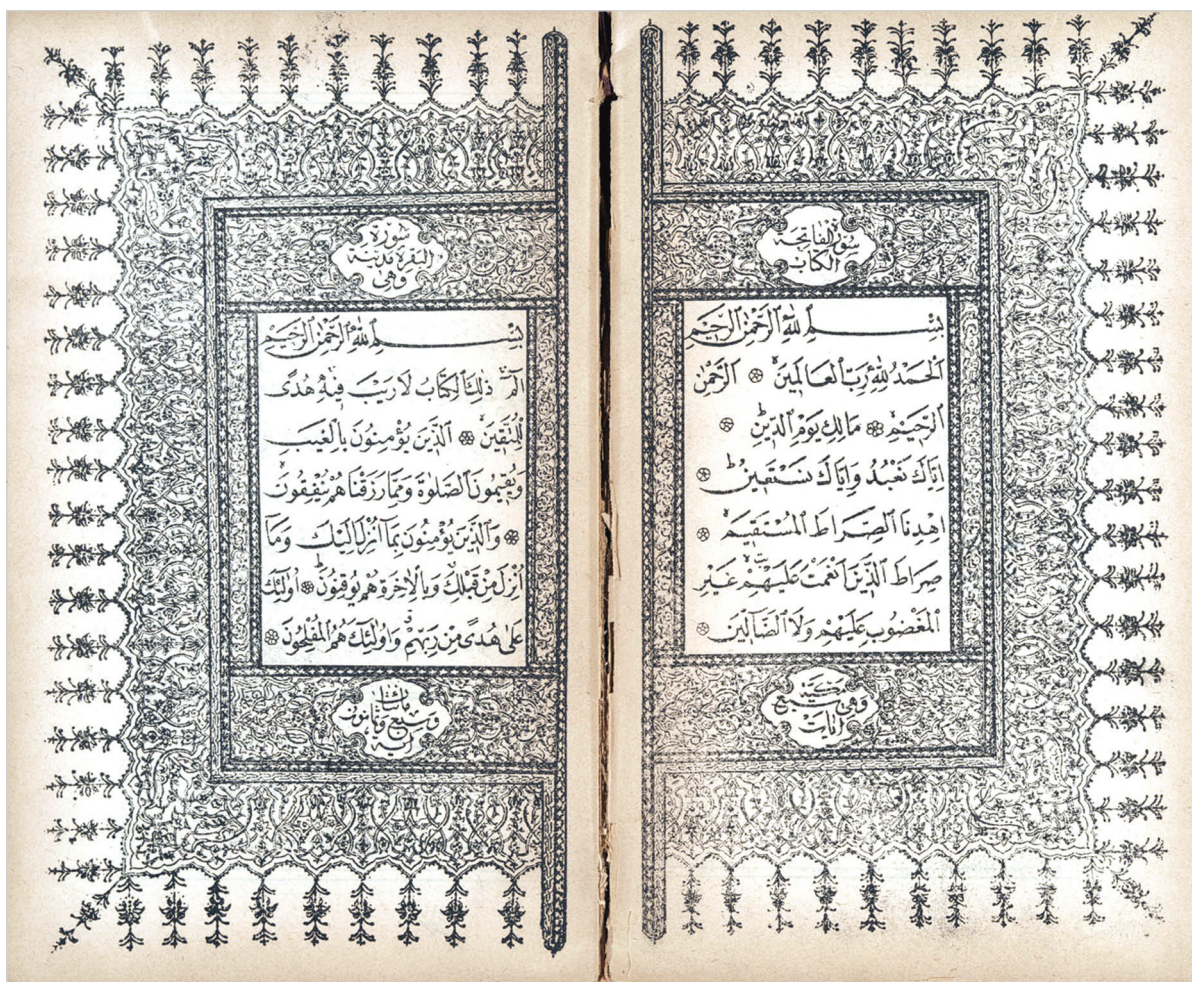 سورة الفاتحة
الكتاب
بِسْمِ اللّٰهِ الرَّحْمٰنِ الرَّحِيمِ
اَلْحَمْدُ لِلّٰهِ رَبِّ الْعَالَمِينَ ۞ اَلرَّحْمٰنِ
الرَّحِيمِ ۞ مَالِكِ يَوْمِ الدِّينِ ۞
اِيَّاكَ نَعْبُدُ وَاِيَّاكَ نَسْتَعِينُ ۞
اِهْدِنَا الصِّرَاطَ الْمُسْتَقِيمَ ۞
صِرَاطَ الَّذِينَ اَنْعَمْتَ عَلَيْهِمْ غَيْرِ
الْمَغْضُوبِ عَلَيْهِمْ وَلَا الضَّالِّينَ ۞
مكية
وهى سبع
آيات
سورة
البقرة مدنية
وهى
بِسْمِ اللّٰهِ الرَّحْمٰنِ الرَّحِيمِ
الٓمٓ ذٰلِكَ الْكِتَابُ لَا رَيْبَ فِيهِ هُدًى
لِلْمُتَّقِينَ ۞ اَلَّذِينَ يُؤْمِنُونَ بِالْغَيْبِ
وَيُقِيمُونَ الصَّلٰوةَ وَمِمَّا رَزَقْنَاهُمْ يُنْفِقُونَ
۞ وَالَّذِينَ يُؤْمِنُونَ بِمَا اُنْزِلَ اِلَيْكَ وَمَا
اُنْزِلَ مِنْ قَبْلِكَ وَبِالْاٰخِرَةِ هُمْ يُوقِنُونَ ۞ اُولٰئِكَ
عَلٰى هُدًى مِنْ رَبِّهِمْ وَاُولٰئِكَ هُمُ الْمُفْلِحُونَ ۞
مائتان
وسبع وثمانون
آية